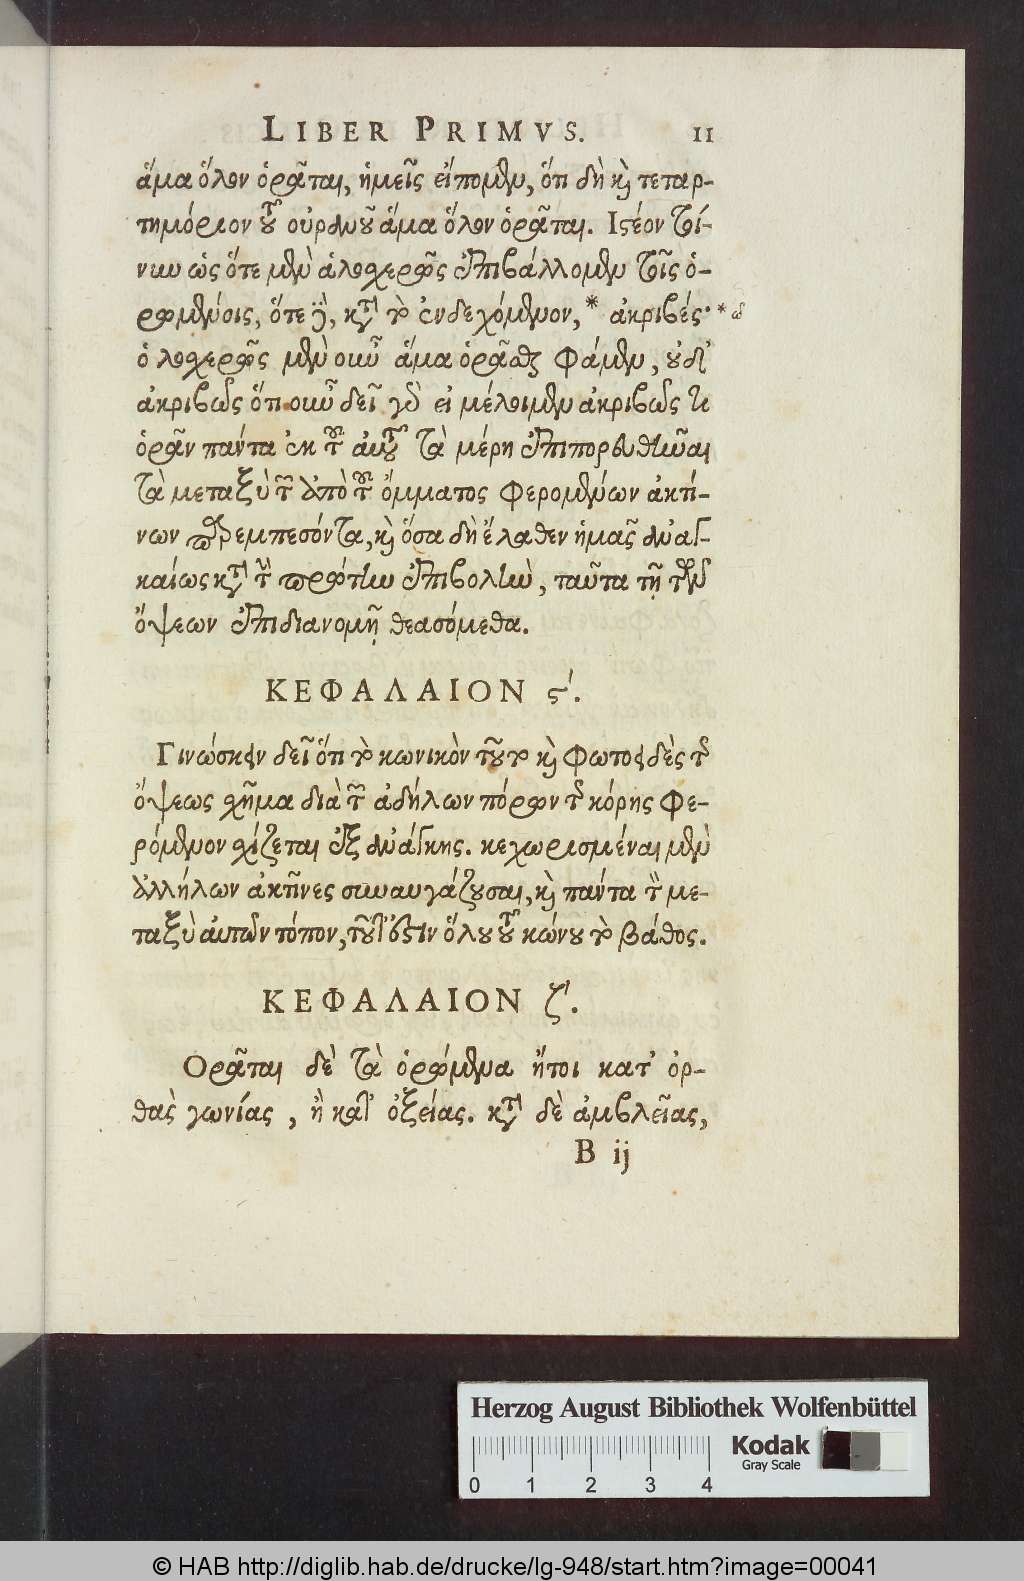 LIBER PRIMVS. 11
ἅμα ὅλον ὁρᾶται, ἡμεῖς εἴπομεν, ὅτι δὴ καὶ τεταρ-
τημόριον τοῦ οὐρανοῦ ἅμα ὅλον ὁρᾶται. Ιςέον τοί-
νυν ὡς ὅτε μὲν ὁλοχερῶς ἐπιβάλλομεν τοῖς ὁ-
ρωμένοις, ὅτε δὲ, κατὰ τὸ ἐνδεχόμενον, * ἀκριβές· * ῶ
ὁλοχερῶς μὲν οὖν ἅμα ὁρᾶσθαι φάμεν, οὐδ'
ἀκριβῶς ὅτι οὖν δεῖ γὸ εἰ μέλοιμεν ἀκριβῶς τι
ὁρᾶν πάντα ἐκ τοῦ αὐτοῦ τὰ μέρη ἐπιπορευθῆναι
τὰ μεταξὺ τῶν ἀπὸ τοῦ ὄμματος φερομένων ἀκτί-
νων παρεμπεσόντα, καὶ ὅσα δὴ ἔλαθεν ἡμᾶς ἀναγ-
καίως κατὰ τὴν πρώτην ἐπιβολὴν, ταῦτα τῇ τῶν
ὄψεων ἐπιδιανομῇ θεασόμεθα.
ΚΕΦΑΛΑΙΟΝ ς'.
Γινώσκειν δεῖ ὅτι τὸ κωνικὸν τοῦτο καὶ φωτοειδὲς τῆς
ὄψεως σχῆμα διὰ τῶν ἀδήλων πόρων τῆς κόρης φε-
ρόμενον σχίζεται ἐξ ἀνάγκης. κεχωρισμέναι μὲν
ἀλλήλων ἀκτῖνες συναυγάζουσαι, καὶ πάντα τὸν με-
ταξὺ αὐτῶν τόπον, τοῦτ' ἔστιν ὅλου τοῦ κώνου τὸ βάθος.
ΚΕΦΑΛΑΙΟΝ ζ'.
Ορᾶται δὲ τὰ ὁρώμενα ἤτοι κατ' ὀρ-
θὰς γωνίας, ἢ κατ' ὀξείας. κατὰ δὲ ἀμβλείας,
B ij
Herzog August Bibliothek Wolfenbüttel
0 1 2 3 4
Kodak
Gray Scale
© HAB http://diglib.hab.de/drucke/lg-948/start.htm?image=00041